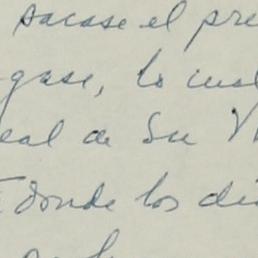 sacase el pre
gase, lo cual
eal de Su
donde los di